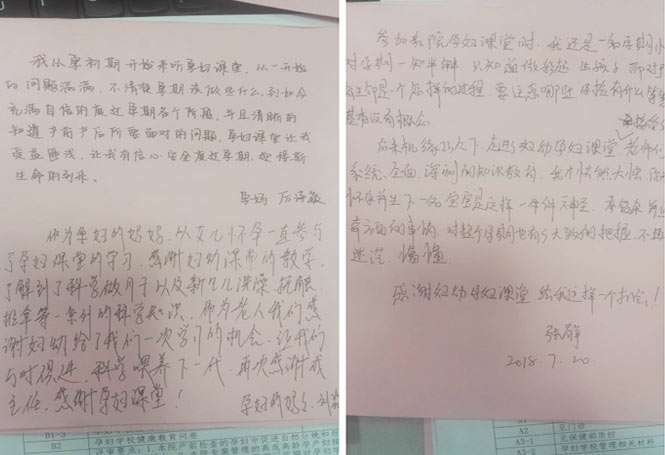 我从孕初期开始来听孕妇课堂，从一开始
的问题满满，不清楚孕期该做些什么，到如今
充满自信的度过孕期各个阶段，并且清晰的
知道产前产后所要面对的问题，孕妇课堂让我
受益匪浅，让我有信心安全度过孕期，迎接新
生命的到来。
孕妇
作为孕妇的妈妈，从女儿怀孕一直参与
了孕妇课堂的学习，感谢妇幼课堂的教学，
了解到了科学做月子以及新生儿洗澡、抚触、
推拿等一系列的科学知识，作为老人我们感
谢妇幼给了我们一次学习的机会，让我们
与时俱进，科学喂养下一代，再次感谢
主任，感谢孕妇课堂！
孕妇的妈妈：刘
参加贵院孕妇课堂时，我还是一名孕期小
对孕期一知半解，只知道做彩超，生孩子，那对
都是个怎样的过程，要注意哪些，体检有什么
基本没有概念。
后来机缘巧入下，走进了妇幼孕妇课堂，老师
系统、全面、深刻的知识教育，我才恍然大悟，
怀孕并生下一个宝宝是这样一件神圣、
幸福的事情，对整个孕期也有了大致的把握，不再
迷茫、懵懂。
感谢妇幼孕妇课堂给我这样一个机会！
张静
2018.7.20.
B1-3 孕妇学校健康教育问卷
B2
A2 见门诊
A3-1 见保健部质控
A3-2 孕妇学校管理相关材料